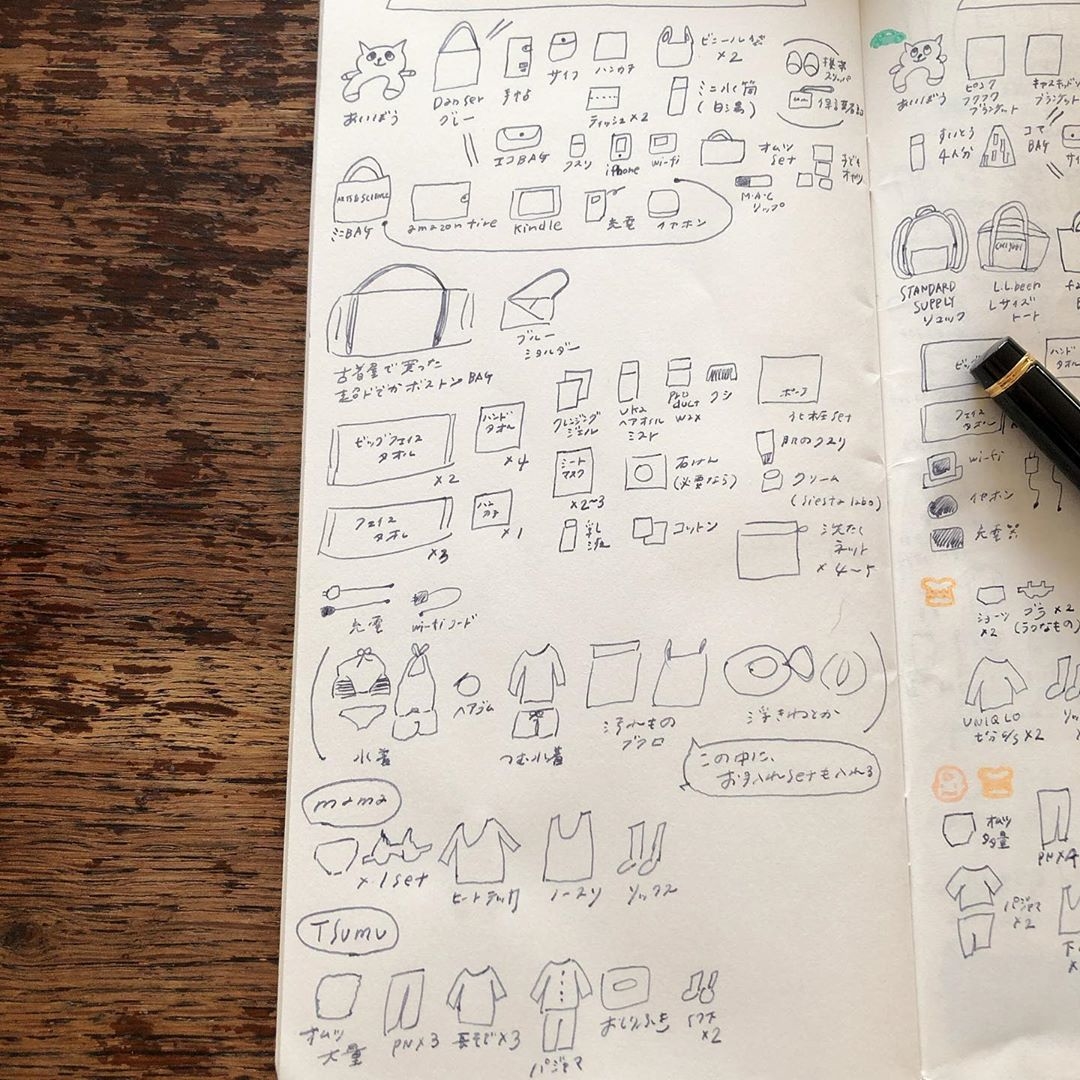 あいぼう
Danser
グレー
手帖
サイフ
ハンカチ
ビニール袋
×2
ティッシュ×2
ミニ水筒
(白湯)
エコBAG
クスリ
iPhone
wi-fi
オムツ
set
子ども
オヤツ
ARTS & SCIENCE
ミニBAG
amazon fire
Kindle
充電
イヤホン
M・A・C
リップ
古着屋で買った
超ドでかボストンBAG
ブルー
ショルダー
ビッグフェイス
タオル
×2
ハンド
タオル
×4
フェイス
タオル
×3
ハン
カチ
×1
クレンジング
ジェル
ヘアオイル
ミスト
pro
duct
wax
クシ
ポーチ
化粧set
シート
マスク
×2~3
石けん
(必要なら)
肌のクスリ
クリーム
(siesta labo)
乳
液
コットン
洗たく
ネット
×4~5
充電
wi-fiコード
水着
ヘアゴム
つむ水着
汚れもの
ブクロ
浮きわとか
この中に、
お手入れsetも入れる
mama
×1set
ヒートテック
ノースリ
ソックス
Tsumu
オムツ
大量
PN×3
長そで×3
パジャマ
おしりふき
×2
あいぼう
ピンク
フワフワ
ブランケット
ブランケット
すいとう
4人分
コマ
BAG
STANDARD
SUPPLY
リュック
L.L.Bean
Lサイズ
トート
ハンド
タオル
フェイス
タオル
wi-fi
イヤホン
充電器
ショーツ
×2
ブラ×2
(ラクなもの)
UNIQLO
オムツ
大量
PN×4
パジャマ
×2